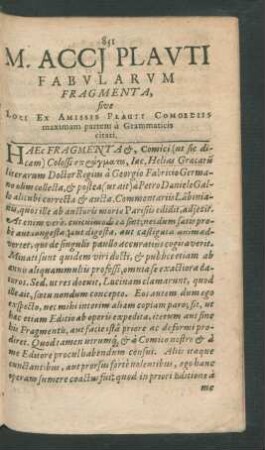 851
M. ACCJ PLAVTI
FABVLARVM
FRAGMENTA,
sive
LOCI EX AMISSIS PLAUTI COMOEDIIS
maximam partem à Grammaticis
citati.
HAEc FRAGMENTA &, Comici (ut sic di-
cam) Colossi Iac. Helias
literarum Doctor Regim à Georgio Fabritio Germa-
no olim collecta, & postea (ut ait) à Petro Daniele Gal-
lo alicubi correcta & aucta, Commentariis Lâbinia-
nis, quos ille ab auctoris morte Parisiis edidit, adjecit.
At enim verò, cùm animadv sint; nec dum satis pro-
bè aut congesta aut digesta, aut castigata animad-
verteret, quo de singulis paullo accuratius cogitaverit.
Minati sunt quidem viri docti, & publicè etiam ab
anno aliquam multis professi, omnia se exactiora da-
turos. Sed, ut res docuit, Lucinam clamarunt, quod
ille ait, factu nondum conceptu. Eos autem dum ego
exspecto, nec mihi interim aliam copiam paro, sit, ut
hac etiam Editio ab operis expedita, iterum aut sine
his Fragmentis, aut facie istâ priore ac deformi pro-
diret. Quod tamen utrumq, & à Comico nostro & à
me Editore procul habendum censui. Aliis itaque
cunctantibus, aut prorsus fortè nolentibus, ego hanc
operam sumere coactus fui: quod in priori Editione à
me